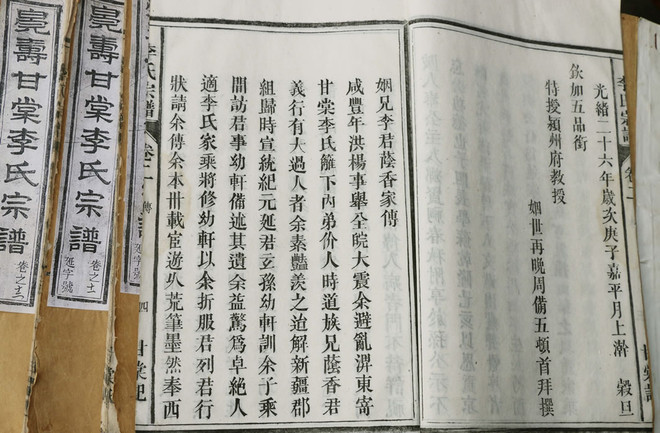 光緒二十六年歲次庚子嘉平月上澣 穀旦
欽加五品銜
特授潁州府教授
姻世再晚周備五頓首拜撰
姻兄李君蔭香家傳
咸豐年洪楊事舉全皖大震余避亂淠東寄
甘棠李氏籬下內弟价人時道族兄蔭香君
義行有大過人者余素豔羨之迨解新疆郡
組歸時宣統紀元延君玄孫幼軒訓余子乘
閒訪君事幼軒備述其遺余益驚為卓絕人
適李氏家乘將修幼軒以余折服君列君行
狀請余傳余本卅載宦遊久荒筆墨然奉西
李氏宗譜 傳 四 甘棠
壽甘棠李氏宗譜
卷之 延字號
壽甘棠李氏宗譜
卷之 字號